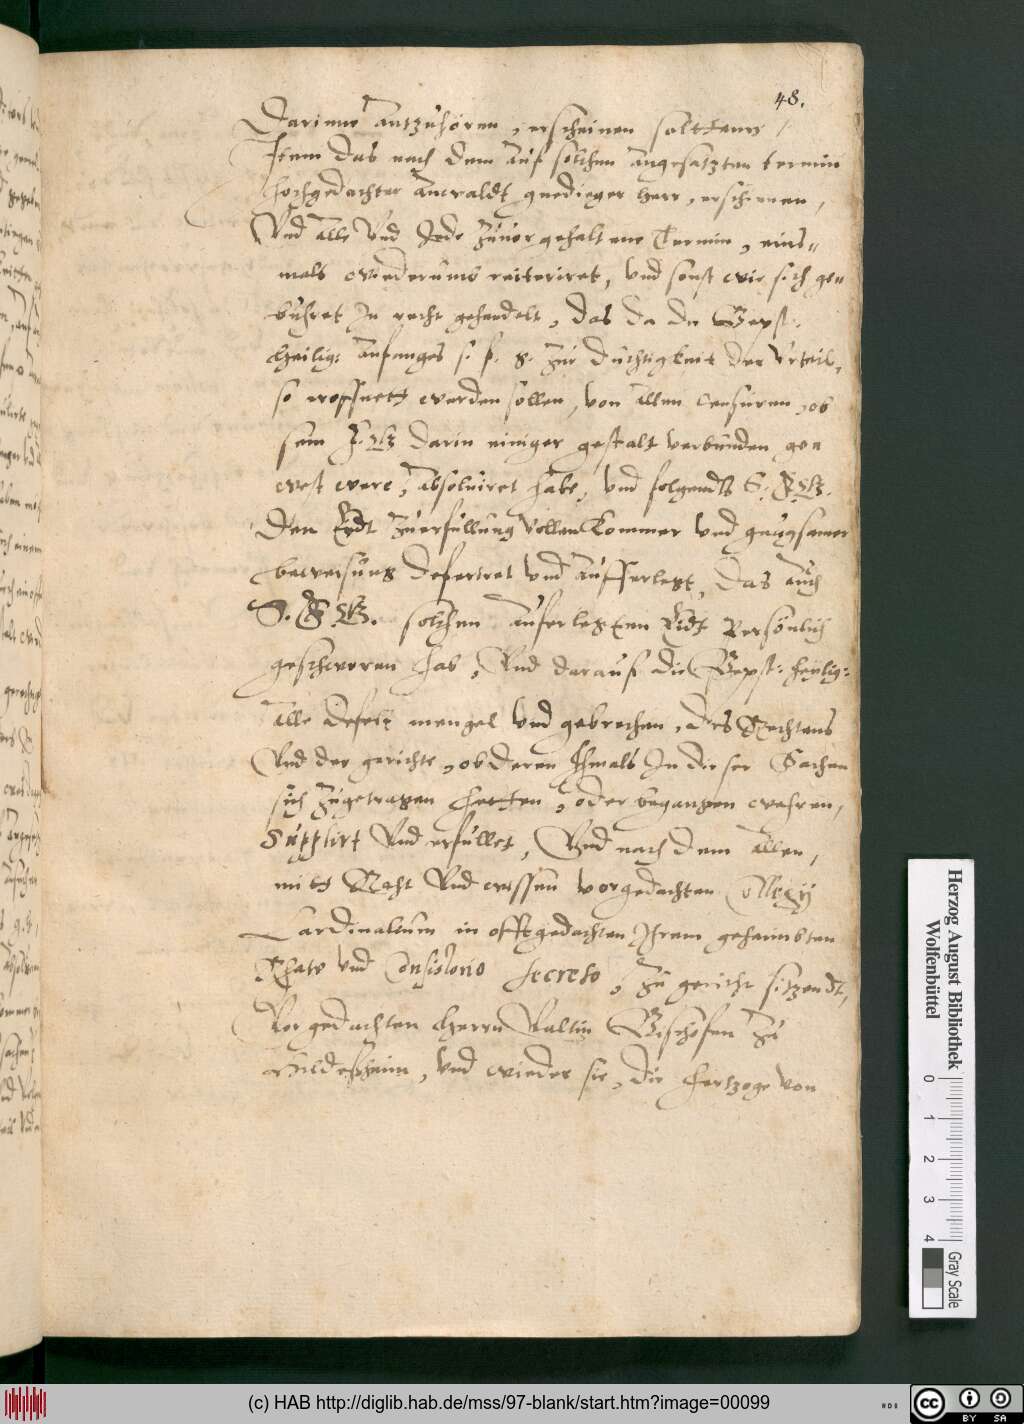 48.
Darinne antzuhören, erscheinen soltten /
Item das nach dem auf solchen angesatzten termin
hochgedachter Anwaldt gnediger herr, erschinen,
Vnd alle Vnd Jede zuuor gehaltene Termin, eins„
mals wiederumb reiteriret, Vnd sonst wie sich ge„
buhret In recht gehandelt, das da die Bepst:
heilig: anfanges zur duchtigkeit der Vrteil,
so eroffnett werden sollen, von allen censuren, ob
sein F. G. darin einiger gestalt verbunden ge„
west were, absoluiret habe, Vnd folgends S. F. G.
den Eydt zu erfullung vollenkommer Vnd gnugsamer
beweisung deferiret Vnd aufferlegt, das auch
S. F. G. solchen auferlegten Eidt Persönlich
geschworen hab, Vnd darauf die Bepst: heylig:
alle defect mengel Vnd gebrechen, des Rechtens
Vnd der gerichte, ob deren Ihmals In dieser Sachen
sich zugetragen hetten, oder begangen wehren,
Supplirt Vnd erfullet, Vnd nach dem allen,
mitt Raht Vnd wissen vorgedachten Collegij
Cardinalium in offtgedachten Ihrem geheimbten
Rhate Vnd Consistorio secreto, zu gericht sitzendt,
Vor gedachten herrn Valtin Bischofen zu
Hildeßheim, Vnd wieder sie, die hertzoge von
Herzog August Bibliothek
Wolfenbüttel
0 1 2 3 4
Gray Scale
(c) HAB http://diglib.hab.de/mss/97-blank/start.htm?image=00099
cc BY SA